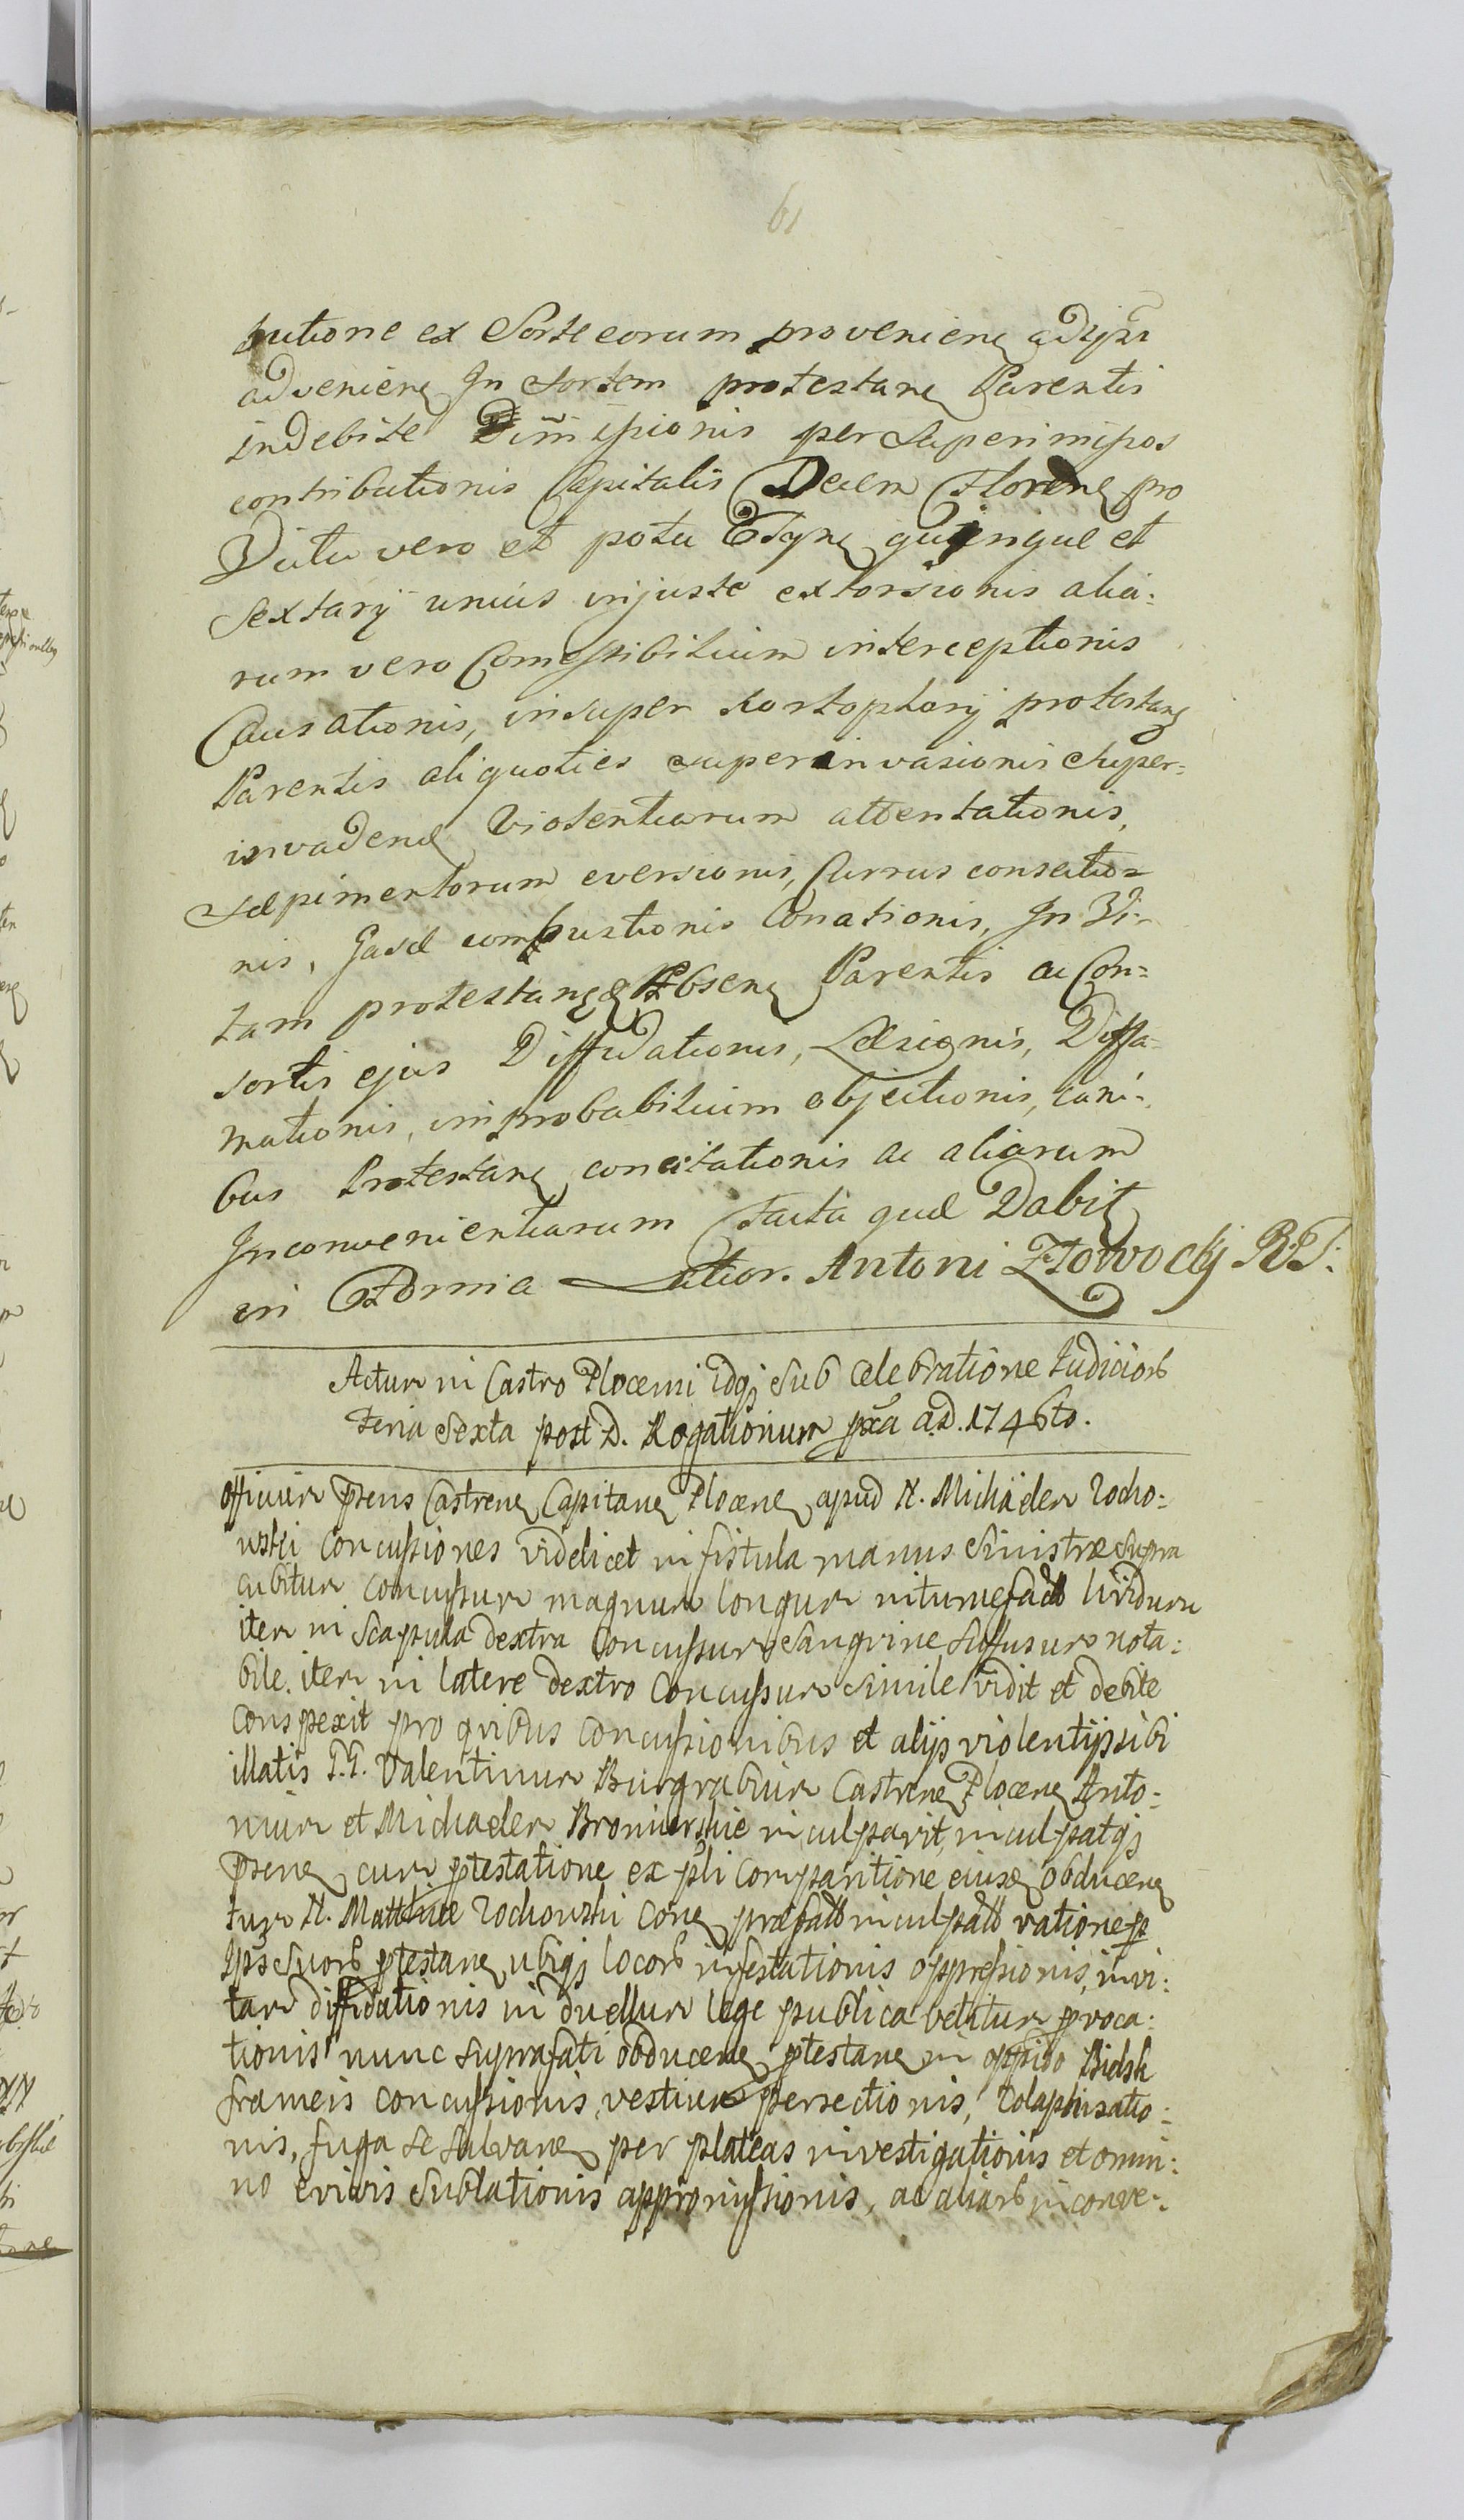 61
ex Sorte eorum provenienĕ adijsi
advenienĕ In Sortem protestanĕ Parentis
indebite per Superimipos
contributionis Capitalis Decem Florenĕ pro
Victu vero et potu Tygnĕ quinque et
Sextarij unius injuste extorsionis alia:
rum vero Comestibilium interceptionis
Causationis, insuper Kostophory protestanĕ
Parentis aliquoties superinvasionis et super-
invadenĕ Violentiarum attentationis,
sæpimentorum eversionis, Currus consectio=
nis, Gasæ combustionis Conationis, In Vi-
tam protestanĕ & Absenĕ Parentis ac Con=
sortis ejus Diffidationis, Læsionis, Diffa-
mationis, improbabilium objectionis, cani-
bus Protestanĕ concitationis ac aliarum
Inconvenientiarum facta quæ Dabitĕ
in Forma Latior. Antoni Złowockj R:P:
Actum in Castro Plocensi idqj sub celebratione Judiciorb
Feria Sexta post D. Rogationum pxa a.d. 1746to.
Officium pñens Castrenĕ Capitanĕ Plocenĕ apud N. Michäelem Rocho:
wski concussiones videlicet in fistula manus Sinistræ supra
cubitum concussum magnum longum intumefactb lividum
item in Scapula dextra Concussum Sangvine suffusum nota:
bile. item in latere dextro Concussum simile vidit et debite
conspexit pro qvibus concussionibus et alijs violentijs sibi
illatis G.G. Valentinum Burgrabium Castrenĕ Plocenĕ Anto:
nium et Michaelem Bromierskie inculpavit, inculpatqj
pñenĕ cum ptestatione ex pñli comparitione eiusĕ obducenĕ
tum N. Matthiæ Rochowski conĕ præfatb inculpatb ratione pr
Ipos Suorb ptestanĕ ubiqj locorb infestationis oppressionis, in vi:
tam diffidationis in duellum lege publica vetitum provoca:
tionis nunc suprafati obducenĕ ptestanĕ in oppido Bielsk
frameis concussionis, vestium persectionis, Colaphisatio:
nis, fuga se salvanĕ per plateas investigationis et omni:
no e vivis Sublationis appromissionis, ac aliarb inconve: